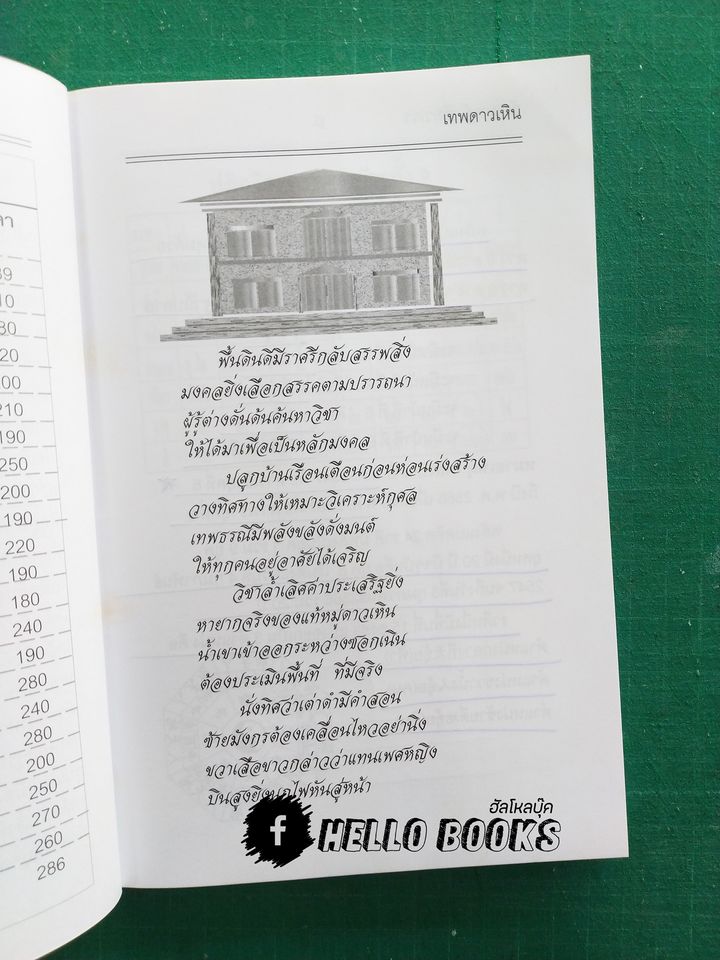 เทพดาวเหิน
พื้นดินดีมีราศรีกลับสรรพสิ่ง
มงคลยิ่งเลือกสรรคตามปรารถนา
ผู้รู้ต่างดั่นด้นค้นหาวิชา
ให้ได้มาเพื่อเป็นหลักมงคล
ปลูกบ้านเรือนเตือนก่อนห่อนเร่งสร้าง
วางทิศทางให้เหมาะวิเคราะห์กุศล
เทพธรณีมีพลังขลังดั่งมนต์
ให้ทุกคนอยู่อาศัยได้เจริญ
วิชาล้ำเลิศค่าประเสริฐยิ่ง
หายากจริงของแท้หมู่ดาวเหิน
น้ำเขาเข้าออกระหว่างซอกเนิน
ต้องประเมินพื้นที่ ที่มีจริง
นั่งทิศว่าเต่าดำมีคำสอน
ซ้ายมังกรต้องเคลื่อนไหวอย่านิ่ง
ขวาเสือขาวกล่าวว่าแทนเพศหญิง
บินสูงยิ่งนกไฟหันสู่หน้า
ฮัลโหลบุ๊ค
f HELLO BOOKS
ลา
39
10
80
120
200
210
190
250
200
190
220
190
180
240
190
280
240
280
200
250
270
260
286